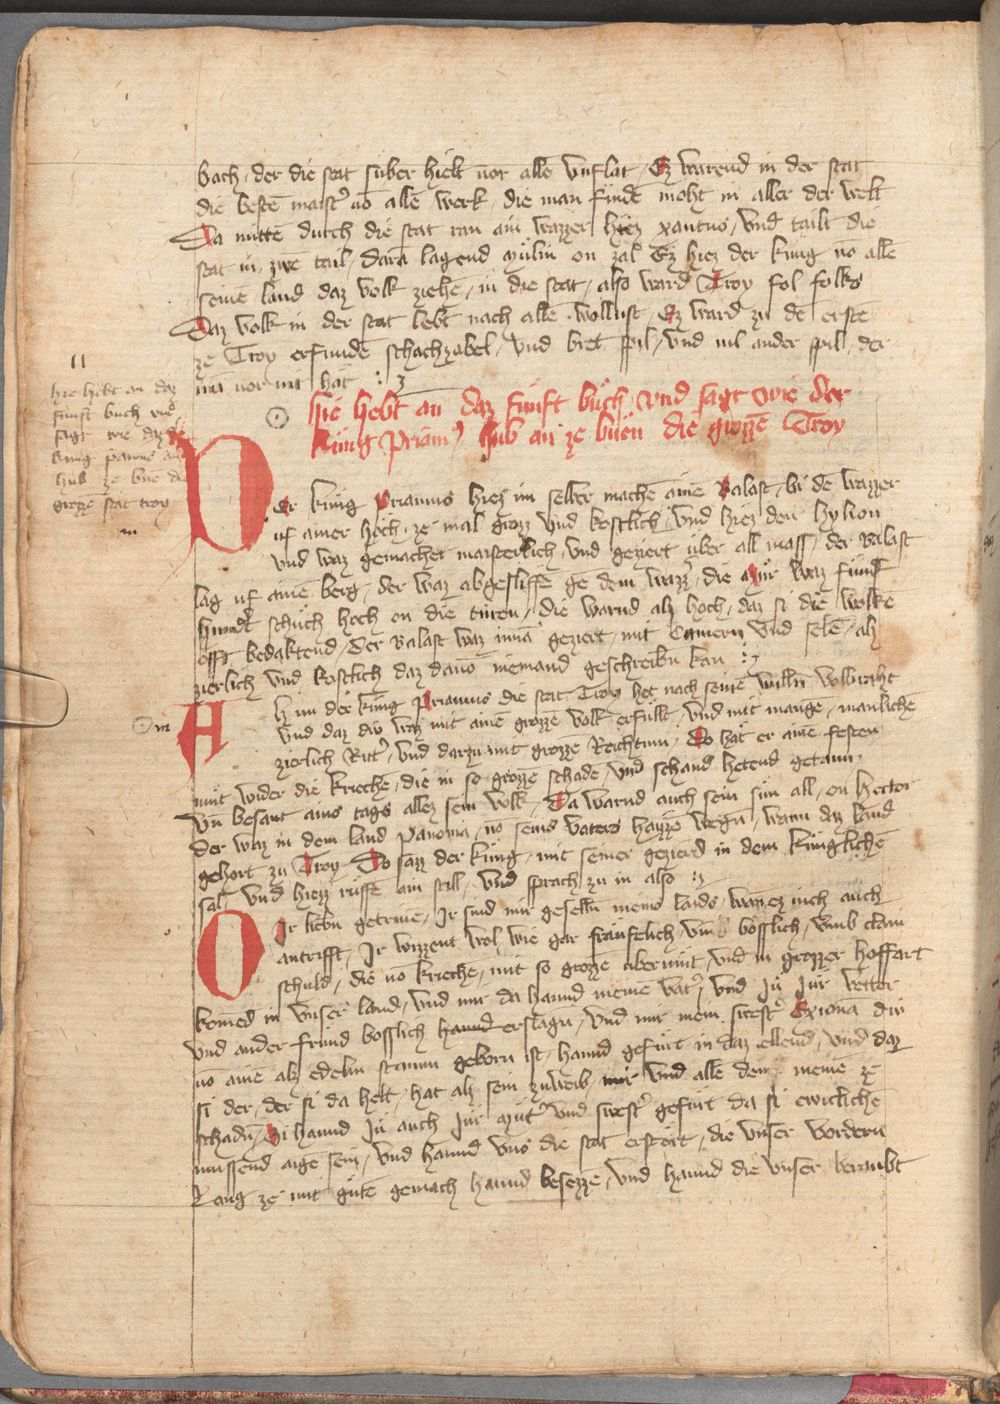 bach / der die stat suber hielt vor alle vnflat / Ez warend in der stat
die beste maist' vo alle werk / die man finde moht in aller der welt
Da mitte durch die stat ran ain wazzer hiez xantus / vnd tailt die
stat in zwe tail / dara lagend mülin on zal Ez hiez der küng vo alle
seine land daz volk ziehe / in die stat / also ward Troy fol folks
Daz volk in der stat lebt nach alle wollust / Ez ward zu de erste
ze Troy erfunde schachzabel / vnd bret spil / vnd vil ander spil / der
ma vor nit hat
Hie hebt an daz fünft büch vnd sagt wie der
küng Priam' hub an ze buen die grozze Troy
hie hebt an daz
funft buch vnd
sagt wie daz der
kung pamus an
hub ze bue di
grozze stat troy
Der küng Priamus hiez im selber mache aine Balast / bi de wazzer
uf ainer höch / ze mal grozz vnd kostlich / vnd hiez den ylion
vnd waz gemachet maisterlich / vnd geziert über all mass / der Balast
lag uf aine berg / der waz abgesliffe ge dem wazz' / die mür waz fünf
hundt schuch hoch on die türen / die warnd alz hoch / daz si die wolke
offt bedaktend / der Balast waz inna geziert / mit camern vnd sele / alz
zierlich vnd kostlich daz dauo niemand geschreibn kan
Alz im der küng Priamus die stat Troy het nach seine willn volbraht
vnd daz div waz mit aine grozze volk erfüllt / vnd mit mange / manliche
zierlich Ritt' / vnd darzu mit grozze Reichtum / Do hat er aine festen
müt wider die krieche / die in so grozze schade / vnd schand hetend getann
vn besant ains tags allez sein volk / Da warnd auch sein sün all / on Hector
der waz in dem land panonia / vo seins vaters hayzze wegn / wann daz land
gehort zu Troy / Do sazz der küng / mit seiner gezierd in dem künglichē
sal / vnd hiezz rüffe ain still / vnd sprach zu in also
O Ir liebn getrüwe / Ir sind mir geselln meins laids / wan ez üch auch
antrifft / Ir wizzent wol / wie gar fraufelich vnd bösslich / vmb clain
schuld / die vo krieche / mit so grozze übermüt / vnd in grozzer hoffart
komed in vnser land / vnd mir da hannd meine vat' / vnd Jü Jür vetter
vnd ander fründ bosslich hannd erslagn / vnd mir mein swest' Exiona div
vo aine alz edelin stamm geborn ist / hannd gefürt in daz ellend / vnd daz
si der / der si da helt / hat alz sein zuweib / mir vnd alle den meine ze
schadn / Si hannd Jü auch Jür müt' vnd swest' gefürt da si ewicliche
mussend aige sein / vnd hannd vns die stat erstört / die vnser vordern
Lang ze mit güte gemach hannd besezze / vnd hannd die vnser beraubt